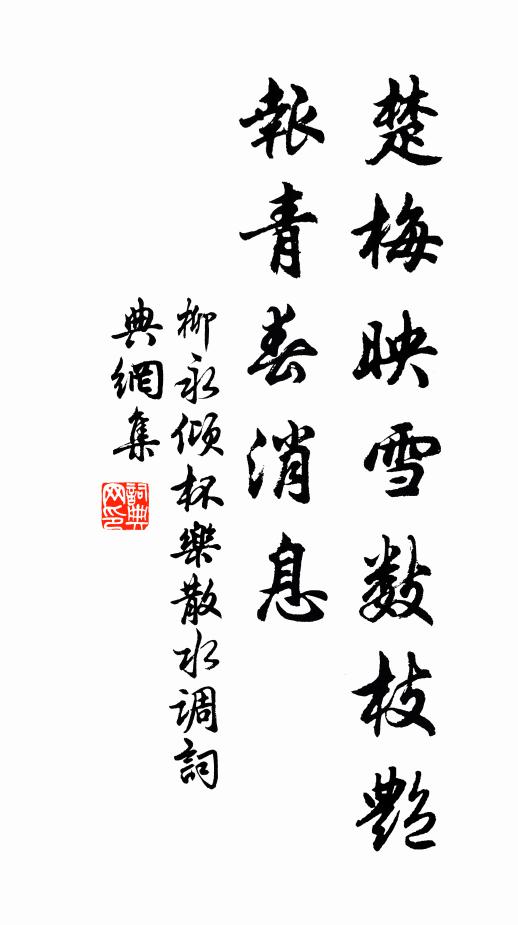 楚梅映雪数枝艶
報青春消息
柳永傾杯樂散水调詞
典網集
詞典
网印